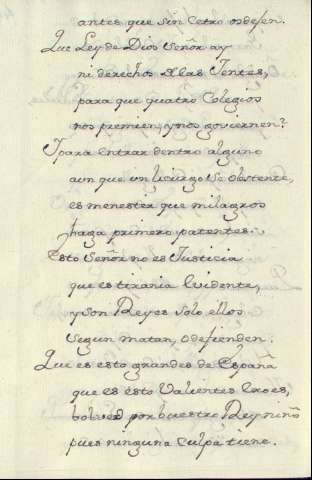 antes que sin Cetro os dejen.
Que Ley de Dios Señor ay
ni derechos A las Jentes,
para que quatro Colegios
nos premien, y nos goviernen?
Y para entrar dentro alguno
aun que un licurgo se obstente,
es menester que milagros
haga primero patentes.
Esto Señor no es Justicia
que es tirania Evidente,
y son Reyes solo ellos
segun matan, o defienden.
Que es esto grandes de España
que es esto Valientes Eroes,
bolved por buestro Rey niño
pues ninguna culpa tiene.